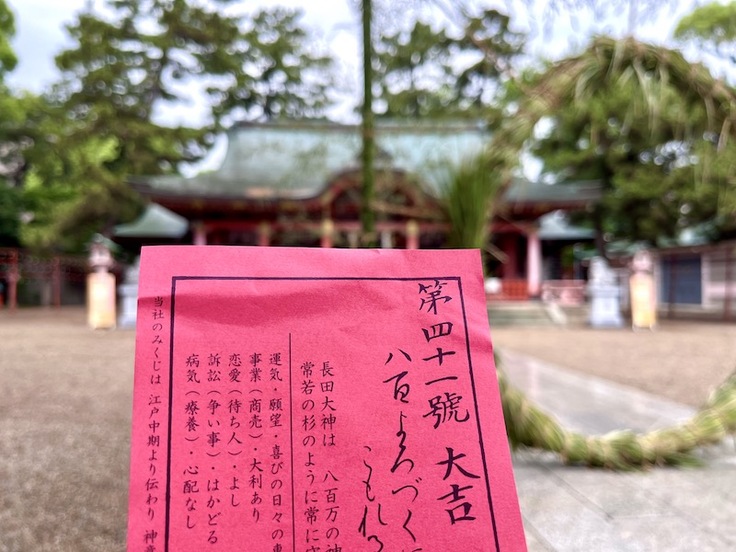 第四十一號 大吉
八百よろづ
こもれ
長田大神は 八百万の神
常若の杉のように常に
運気・願望・喜びの日々の
事業（商売）・大利あり
恋愛（待ち人）・よし
訴訟（争い事）・はかどる
病気（療養）・心配なし
当社のみくじは 江戸中期より伝わり 神